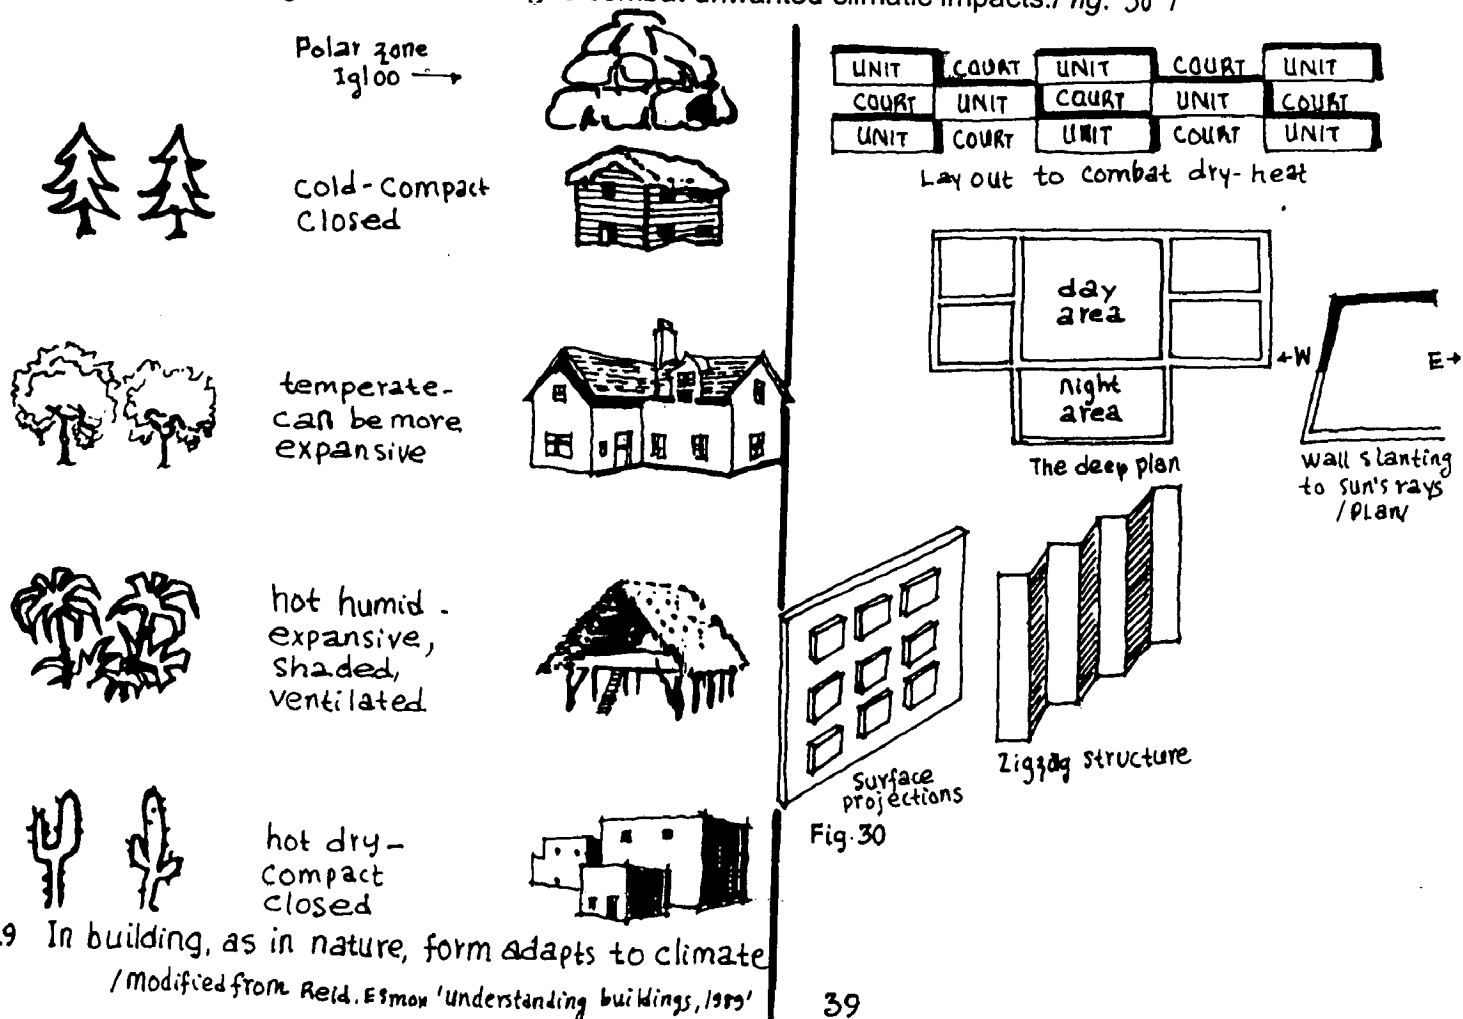 combat unwanted climatic impacts./Fig. 30 /
Polar zone
Igloo
cold-compact
closed
temperate-
can be more
expansive
hot humid -
expansive,
shaded,
ventilated
hot dry-
compact
closed
.9 In building, as in nature, form adapts to climate
/modified from Reid. Esmon 'understanding buildings, 1989'
UNIT COURT UNIT COURT UNIT
COURT UNIT COURT UNIT COURT
UNIT COURT UNIT COURT UNIT
Lay out to combat dry-heat
day
area
night
area
The deep plan
W
E
wall slanting
to sun's rays
/PLAN/
surface
projections
zigzag structure
Fig.30
39